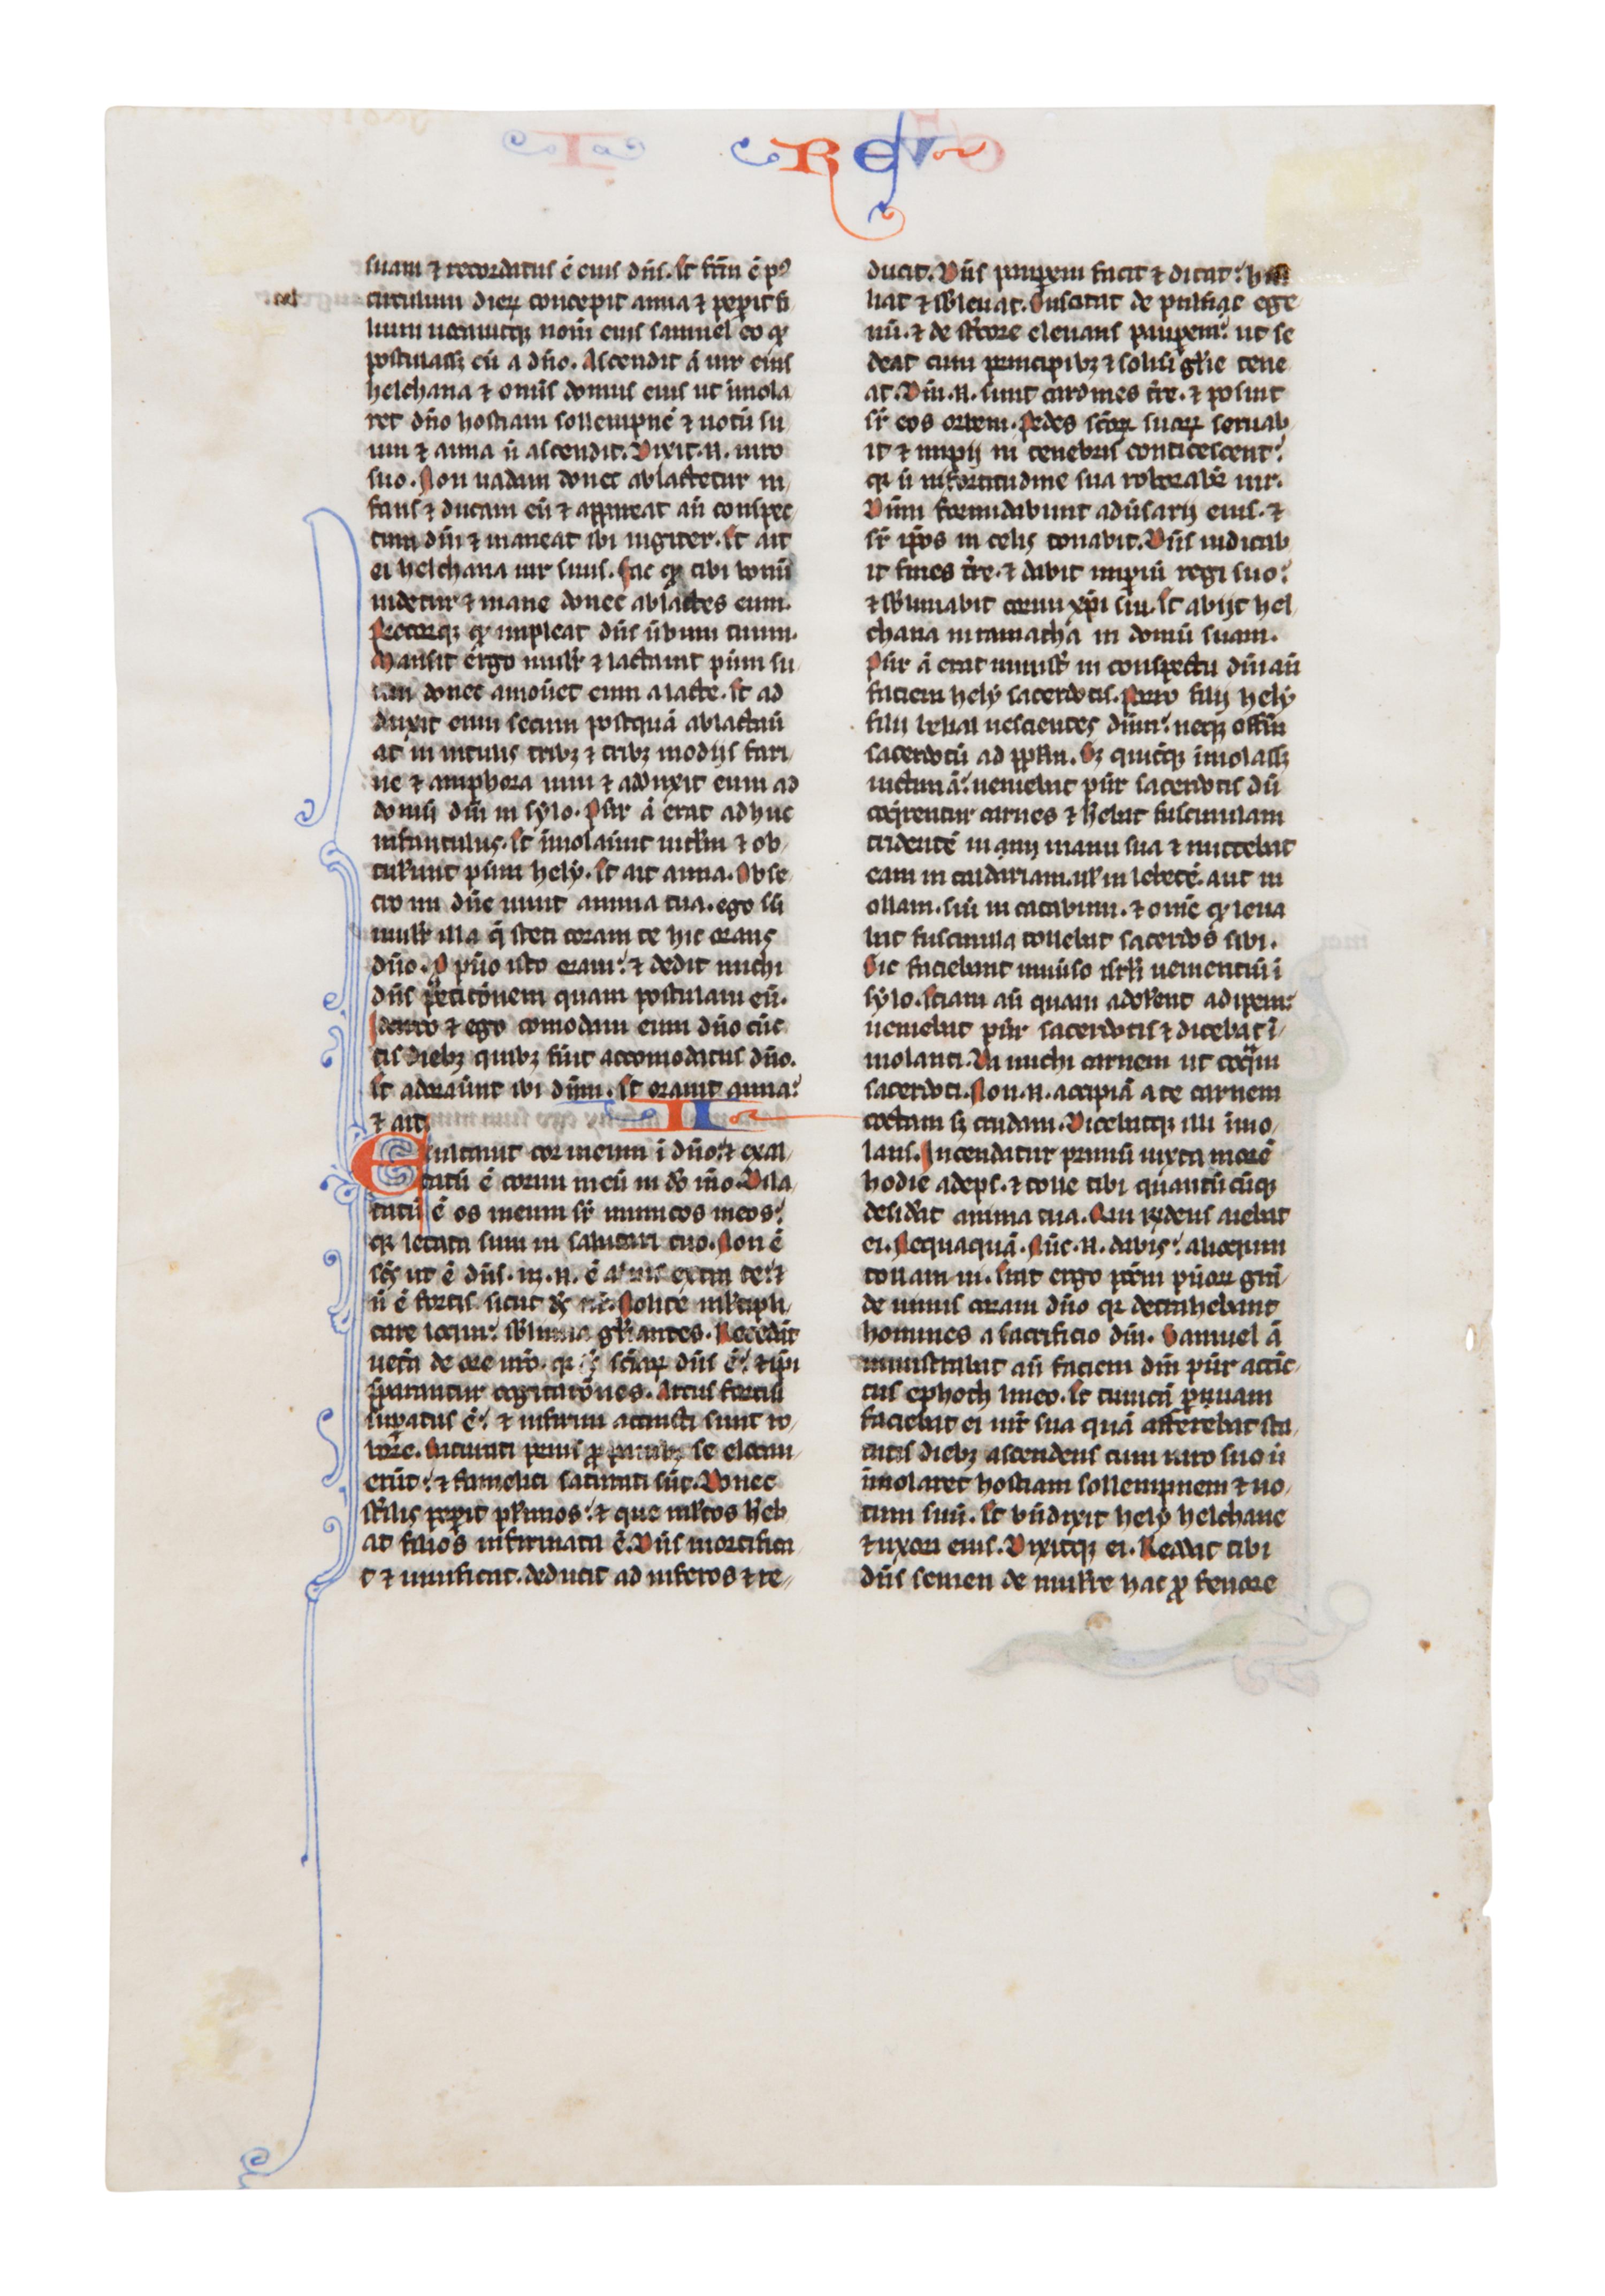 REG
suam ⁊ recordatus ē eius dn̄s. Et fc̄m ē pꝰ
circulum dieꝝ concepit anna ⁊ peperit fi
lium uocauitqꝫ nom̄ eius samuel eo qđ
postulassꝫ eū a dn̄o. Ascendit ā uir eius
helchana ⁊ omīs domus eius ut īmola
ret dn̄o hostiam sollempnē ⁊ uotū su
um ⁊ anna ū ascendit. Dixit .n. uiro
suo. Non uadam donec ablactetur in
fans ⁊ ducam eū ⁊ appareat an̄ conspec
tum dn̄i ⁊ maneat ibi iugiter. Et ait
ei helchana uir suus. Fac qđ tibi bonū
uidetur ⁊ mane donec ablactes eum.
Precorqꝫ qđ impleat dn̄s ūbum tuum.
Mansit ergo mulr̄ ⁊ lactauit pūm su
um donec amoūet eum a lacte. Et ad
duxit eum secum postquā ablactaū
at in uitulis tribꝫ ⁊ tribꝫ modijs fari
ne ⁊ amphora uini ⁊ adduxit eum ad
domū dn̄i in sylo. Pūr ā erat adhuc
infantulus. Et īmolaūunt uitl̄m ⁊ ob
tul̄unt pūm hely. Et ait anna. Obse
cro mi dn̄e uiuit anima tua. ego sū
mulr̄ illa q̄ steti coram te hic orans
dn̄o. P pūo isto oraui: ⁊ dedit michi
dn̄s petitōnem quam postulaui eū.
Idcirco ⁊ ego comodaui eum dn̄o cūc
tis diebꝫ quibꝫ fūit accomodatus dn̄o.
Et adoraūunt ibi dn̄m. Et orauit anna:
⁊ ait.
II
Exultauit cor meum ī dn̄o: ⁊ exal
tatū ē cornu meū in dō mō. Dila
tatū ē os meum sr̄ inimicos meos:
qꝛ letata sum in salutari tuo. Non ē
sc̄s ut ē dn̄s. nꝫ .n. ē alius extra te: ⁊
ū ē fortis sicut ds̄ nr̄. Nolite ml̄tipli
care loqui: sb̄limia gl̄iantes. Recedāt
uetā de ore ūro. qꝛ ds̄ sc̄iaꝝ dn̄s ē: ⁊ ip̄i
p̄parantur cogitatōnes. Arcus fortiū
sup̄atus ē: ⁊ infirmi accincti sunt ro
bore. Saturati prius ꝓ panibꝫ se elocau
erūt: ⁊ famelici saturati sūt. Donec
st̄ilis pep̄it pl̄imos: ⁊ que ml̄tos h̄eb
at filios infirmata ē. Dn̄s mortifica
t ⁊ uiuificat. deducit ad inferos ⁊ re
ducit. Dn̄s paup̄em facit ⁊ ditat:
liat ⁊ sb̄leuat. Suscitat de puluēe ege
nū. ⁊ de st̄core eleuans paup̄em: ut se
deat cum principibꝫ ⁊ soliū gl̄ie tene
at. Dn̄i .n. sunt cardines t̄re. ⁊ posuit
sr̄ eos orbem. Pedes sc̄oꝝ suoꝝ seruab
it ⁊ impij in tenebris conticescent:
qꝛ ū in fortitudine sua roborabit̄ uir.
Dn̄m formidabunt adūsarij eius. ⁊
sr̄ ip̄os in celis tonabit. Dn̄s iudicab
it fines t̄re. ⁊ dabit imp̄iū regi suo:
⁊ sb̄limabit cornu xp̄i sui. Et abijt hel
chana in ramathā in domū suam.
Pūr ā erat ministr̄ in conspectu dn̄i an̄
faciem hely sacerdotis. Porro filij hely
filij belial nescientes dn̄m: neqꝫ offm̄
sacerdotū ad pplm̄. Sꝫ quicqꝫ īmolassꝫ
uictimā: ueniebat pūr sacerdotis dū
coq̄rentur carnes ⁊ h̄ebat fuscinulam
tridentē in manu sua ⁊ mittebat
eam in caldariam. ul̄ in lebetē. aut in
ollam. siū in cacabum. ⁊ omē qđ leua
bat fuscinula tollebat sacerdos sibi.
Sic faciebant uniūso isrl̄i uenientiū ī
sylo. Etiam an̄ quam adol̄ent adipem:
ueniebat pūr sacerdotis ⁊ dicebat ī
molanti. Da michi carnem ut coq̄m
sacerdoti. Non .n. accipiā a te carnem
coctam sꝫ crudam. Dicebatqꝫ illi īmo
lans. Incendatur primū iuxta morē
hodie adeps. ⁊ tolle tibi quantū cūqꝫ
desid̄at anima tua. Qui rn̄dens aiebat
ei. Nequaquā. Nūc .n. dabis: alioquin
tollam ui. Erat ergo pcc̄m pūoꝝ grā
de nimis coram dn̄o qꝛ detrahebant
homines a sacrificio dn̄i. Samuel ā
ministrabat an̄ faciem dn̄i pūr accīc
tus ephoth lineo. Et tunicā paruam
faciebat ei mr̄ sua quā afferebat sta
tutis diebꝫ ascendens cum uiro suo ū
īmolaret hostiam sollempnem ⁊ uo
tum suū. Et bn̄dixit hely helchane
⁊ uxori eius. Dixitqꝫ ei. Reddat tibi
dn̄s semen de mulr̄e hac ꝓ fenore